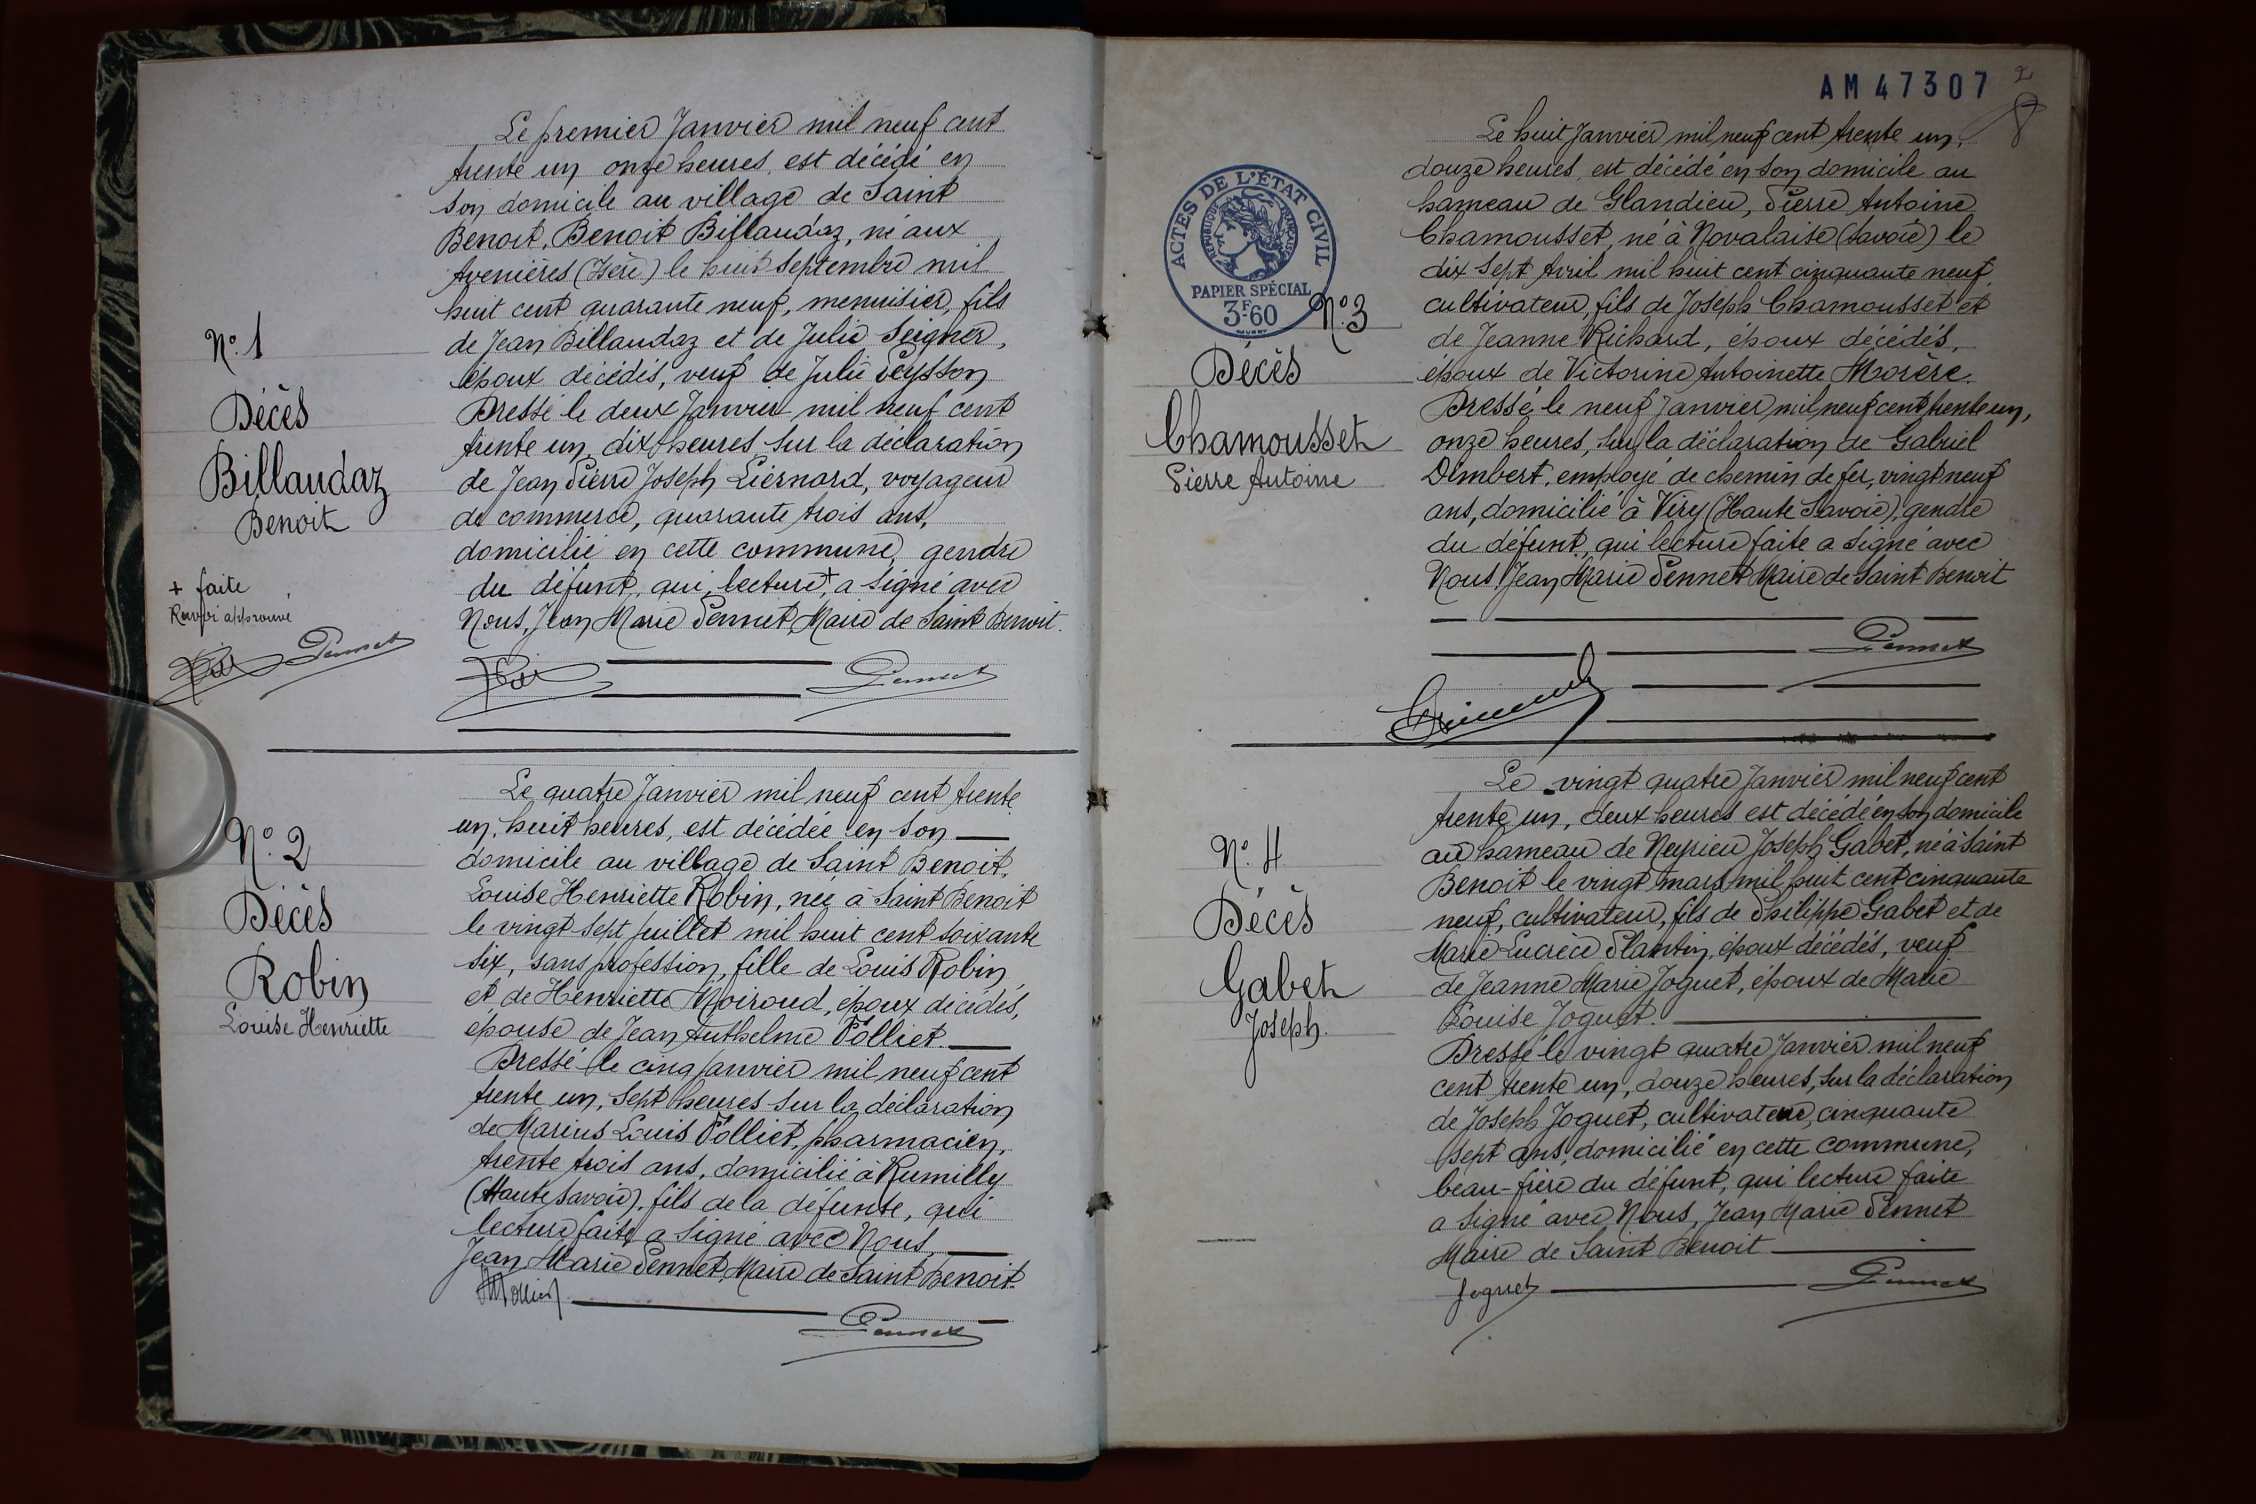 Le premier Janvier mil neuf cent
trente un onze heures, est décédé en
son domicile au village de Saint
Benoit, Benoit Billaudaz, né aux
Avenières (Isère) le huit septembre mil
huit cent quarante neuf, menuisier, fils
de Jean Billaudaz et de Julie Seigner,
époux décédés, veuf de Julie Peysson
Dressé le deux Janvier mil neuf cent
trente un, dix heures, sur la déclaration
de Jean Pierre Joseph Liernard, voyageur
de commerce, quarante trois ans,
domicilié en cette commune, gendre
du défunt, qui, lecture + a signé avec
Nous, Jean Marie Pennet, Maire de Saint Benoit.
Pennet
N° 1
Décès
Billaudaz
Benoit
+ faite
Renvoi approuvé
Pennet
Le quatre Janvier mil neuf cent trente
un, huit heures, est décédée en son
domicile au village de Saint Benoit,
Louise Henriette Robin, née à Saint Benoit
le vingt sept juillet mil huit cent soixante
six, sans profession, fille de Louis Robin
et de Henriette Moiroud, époux décédés,
épouse de Jean Anthelme Folliet.
Dressé le cinq Janvier mil neuf cent
trente un, sept heures sur la déclaration
de Marius Louis Folliet, pharmacien,
trente trois ans, domicilié à Rumilly
(Haute Savoie), fils de la défunte, qui
lecture faite a signé avec Nous,
Jean Marie Pennet, Maire de Saint Benoit.
Folliet
Pennet
N° 2
Décès
Robin
Louise Henriette
AM 47307
2
Le huit Janvier mil neuf cent trente un,
douze heures, est décédé en son domicile au
hameau de Glandieu, Pierre Antoine
Chamousset, né à Novalaise (Savoie) le
dix sept Avril mil huit cent cinquante neuf,
cultivateur, fils de Joseph Chamousset et
de Jeanne Richard, époux décédés,
époux de Victorine Antoinette Morère.
Dressé le neuf Janvier mil neuf cent trente un,
onze heures, sur la déclaration de Gabriel
Dimbert, employé de chemin de fer, vingt neuf
ans, domicilié à Viry (Haute Savoie), gendre
du défunt, qui lecture faite a signé avec
Nous, Jean Marie Pennet Maire de Saint Benoit
Pennet
ACTES DE L'ÉTAT CIVIL
RÉPUBLIQUE FRANÇAISE
PAPIER SPÉCIAL
3F60
N° 3
Décès
Chamousset
Pierre Antoine
Le vingt quatre Janvier mil neuf cent
trente un, deux heures est décédé en son domicile
au hameau de Neyrieu Joseph Gabet, né à Saint
Benoit le vingt mars mil huit cent cinquante
neuf, cultivateur, fils de Philippe Gabet et de
Marie Lucrèce Plantin, époux décédés, veuf
de Jeanne Marie Joguet, époux de Marie
Louise Joguet.
Dressé le vingt quatre Janvier mil neuf
cent trente un, douze heures, sur la déclaration
de Joseph Joguet, cultivateur, cinquante
sept ans, domicilié en cette commune,
beau-frère du défunt, qui lecture faite
a signé avec Nous, Jean Marie Pennet
Maire de Saint Benoit
Joguet
Pennet
N° 4
Décès
Gabet
Joseph